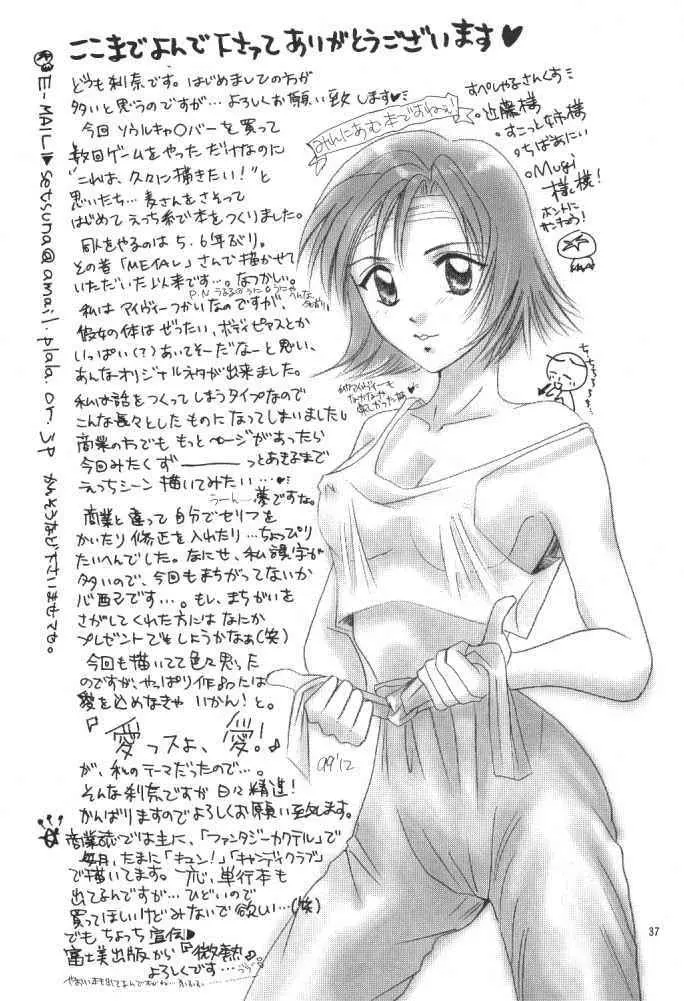 ここまでよんで下さってありがとうございます♥
どうも刹奈です。はじめましての方が
多いと思うのですが…よろしくお願い致します♥
今回 ソウルキャ○バーを買って
数回ゲームをやっただけなのに
"これは、久々に描きたい!"と
思いたち…麦さんをさそって
はじめてえっち系で本をつくりました。
同人をやるのは 5.6年ぶり。
その昔「METAL」さんで描かせて
いただいた以来です…。なつかしい。
私は アイヴィーつかいなのですが、
彼女の体はぜったい、ボディピアスとか
いっぱい(?)あいてそーだなーと思い、
あんなオリジナルネタが出来ました。
私は話をつくってしまうタイプなので
こんな長々としたものになってしまいました
商業の方でも もっとページがあったら
今回みたくずーーーっとあきるまで
えっちシーン 描いてみたい…♥
うーん…夢ですな。
商業と違って自分でセリフを
かいたり修正を入れたり…ちょっぴり
たいへんでした。なにせ、私誤字が
多いので、今回もまちがってないか
心配です…。もし、まちがいを
さがしてくれた方にはなにか
プレゼントでもしようかなぁ(笑)
今回も描いてて色々思った
のですが、やっぱり作品は
愛を込めなきゃ いかん!と。
『愛っスよ、愛!』
が、私のテーマだったので…。
そんな刹奈ですが日々精進!
がんばりますのでよろしくお願い致します。
商業誌では主に、「ファンタジーカクテル」で
毎月、たまに「キュン!」「キャンディクラブ」
で描いてます。一応、単行本も
出てるんですが…ひどいので
買ってほしいけどみないで欲しい…(笑)
でもちょっち宣伝♥
富士美出版から『微熱』
よろしくです…
E-MAIL▶setsuna@amail.plala.or.jp かんそうなど下さいませでも。
みんにあむ本ですねぇ!
すぺしゃるさんくす
近藤様
すこっと姉様
ちばあにい
Mugi様
様!
ホントに
サンキュウ!
99'12
37